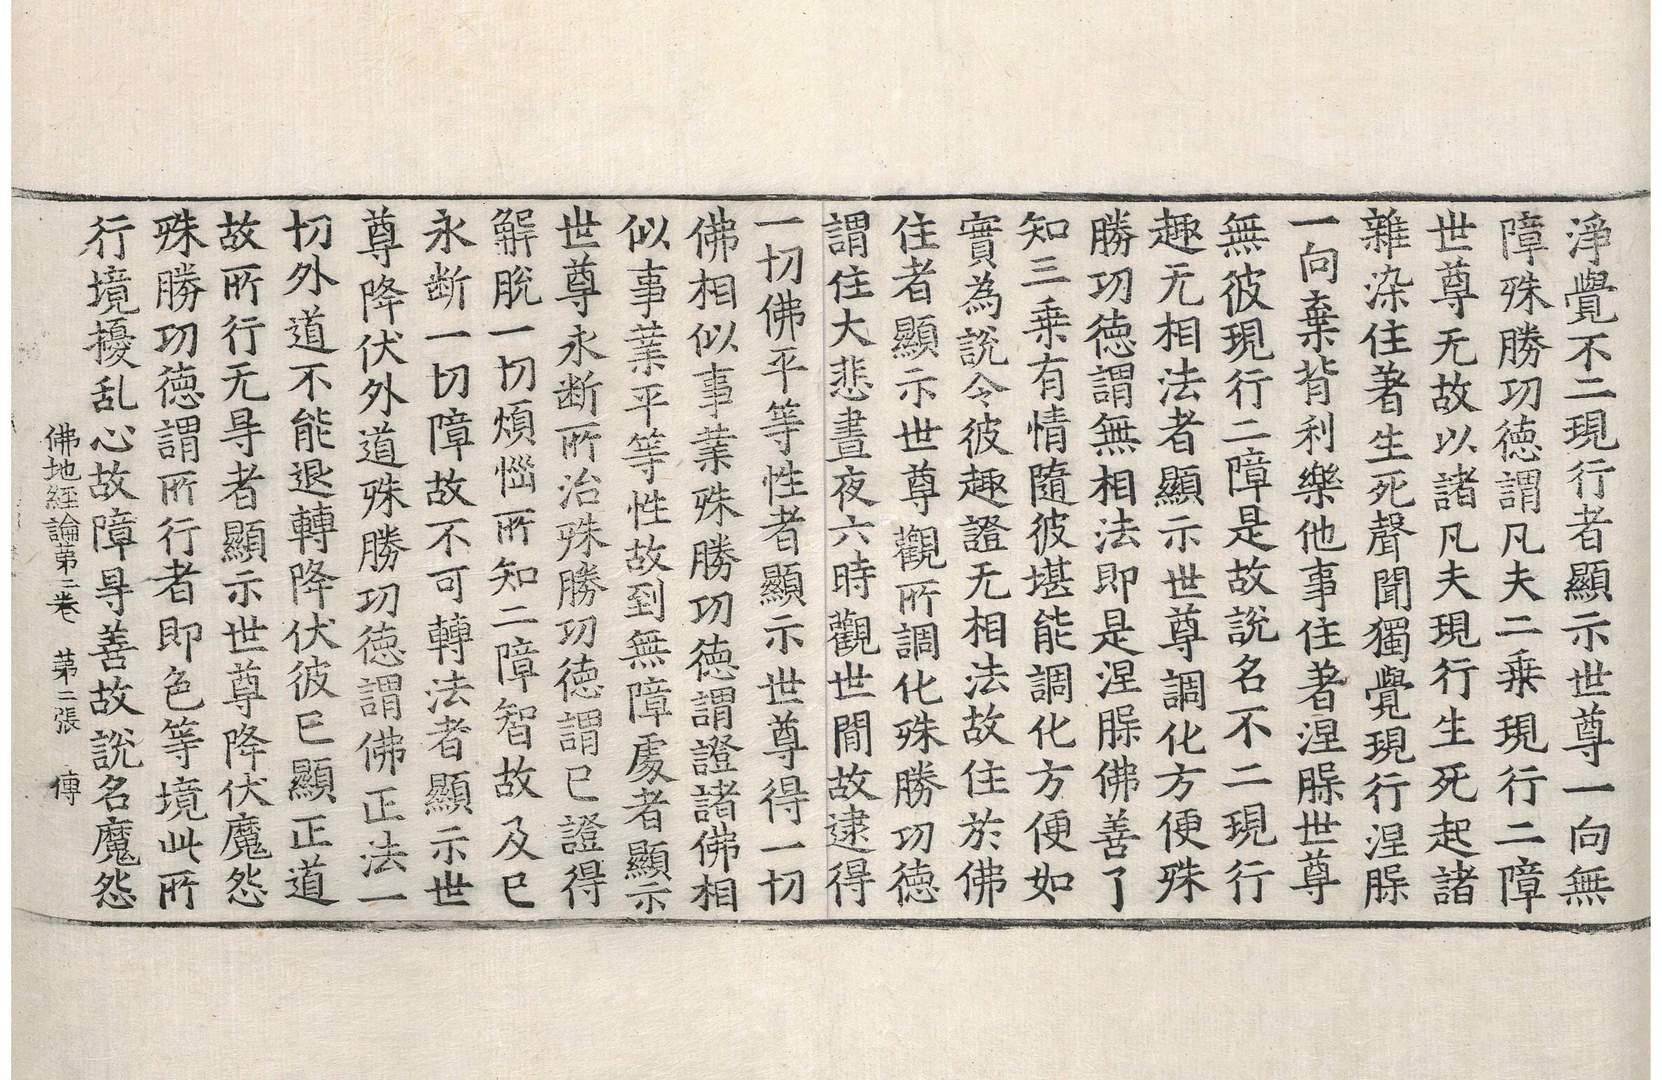 淨覺不二現行者顯示世尊一向無
障殊勝功德謂凡夫二乘現行二障
世尊无故以諸凡夫現行生死起諸
雜染住著生死聲聞獨覺現行涅槃
一向棄背利樂他事住著涅槃世尊
無彼現行二障是故說名不二現行
趣无相法者顯示世尊調化方便殊
勝功德謂無相法即是涅槃佛善了
知三乘有情隨彼堪能調化方便如
實為說令彼趣證无相法故住於佛
住者顯示世尊觀所調化殊勝功德
謂住大悲晝夜六時觀世間故逮得
一切佛平等性者顯示世尊得一切
佛相似事業殊勝功德謂證諸佛相
似事業平等性故到無障處者顯示
世尊永断所治殊勝功德謂已證得
解脫一切煩惱所知二障智故及已
永断一切障故不可轉法者顯示世
尊降伏外道殊勝功德謂佛正法一
切外道不能退轉降伏彼已顯正道
故所行无㝵者顯示世尊降伏魔怨
殊勝功德謂所行者即色等境此所
行境擾乱心故障㝵善故說名魔怨
佛地經論第三卷　第二張　傳